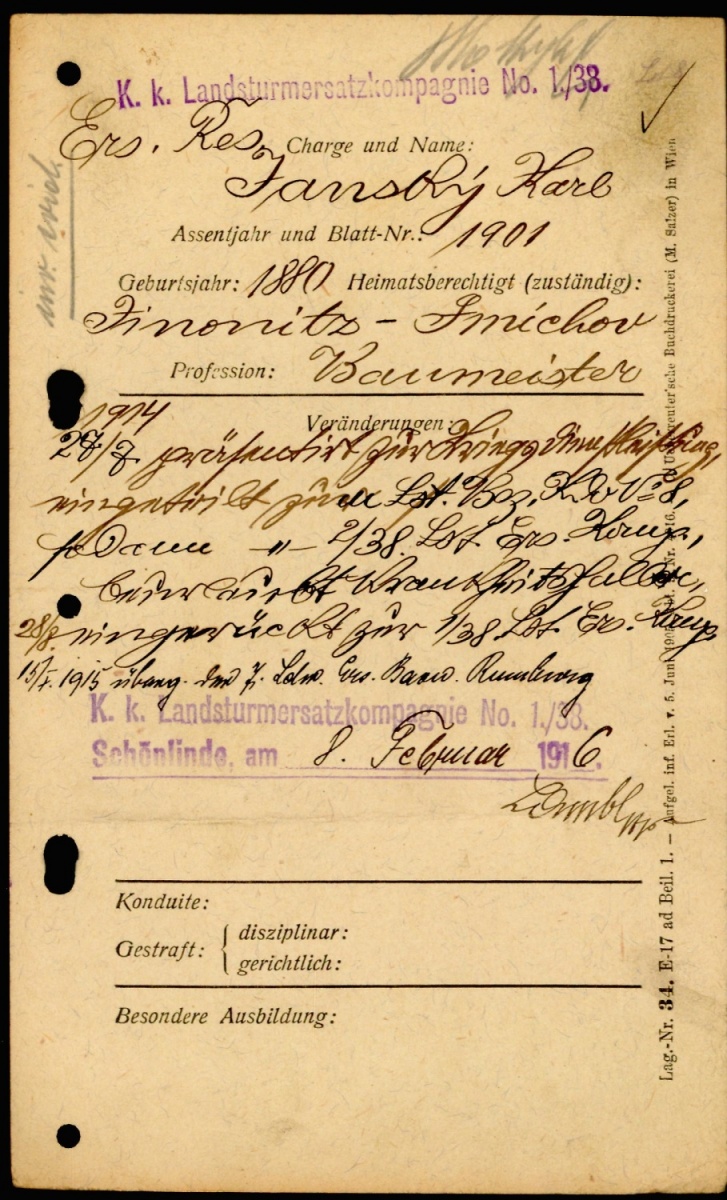 K. k. Landsturmersatzkompagnie No. 1./38.
Ers. Res. Charge und Name:
Janský Karl
Assentjahr und Blatt-Nr.: 1901
Geburtsjahr: 1880 Heimatsberechtigt (zuständig):
Jinonitz - Smíchov
Profession: Baumeister
1914
Veränderungen:
28/7. präsentirt zur Kriegsdienstleistung,
eingeteilt zum Lst. Bez. Kdo No 8,
sodann -"- 2/38. Lst. Ers. Komp.,
beurlaubt krankheitshalber,
28/8. eingerückt zur 1/38 Lst. Ers. Komp.
15/X. 1915 überg. der Ldw. Ers. Baon. Rumburg
K. k. Landsturmersatzkompagnie No. 1./38.
Schönlinde, am 8. Februar 1916.
Konduite:
Gestraft: { disziplinar:
gerichtlich:
Besondere Ausbildung:
Lag.-Nr. 34. E-17 ad Beil. 1. — Aufgel. inf. Erl. v. 5. Juni Buchdruckerei (M. Salzer) in Wien